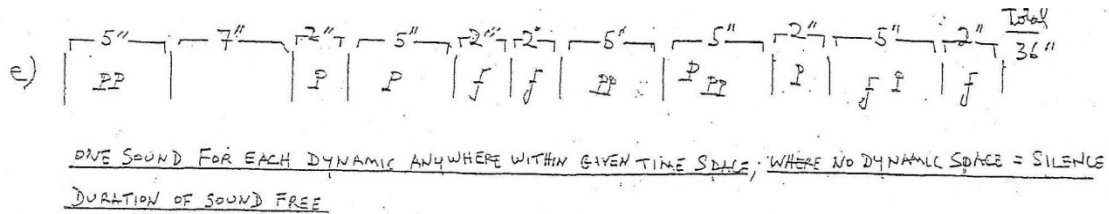 5" 7" 2" 5" 2" 2" 5" 5" 2" 5" 2" Total
36"
e) PP P P f f PP P PP P f P f
ONE SOUND FOR EACH DYNAMIC ANYWHERE WITHIN GIVEN TIME SPACE; WHERE NO DYNAMIC SPACE = SILENCE
DURATION OF SOUND FREE